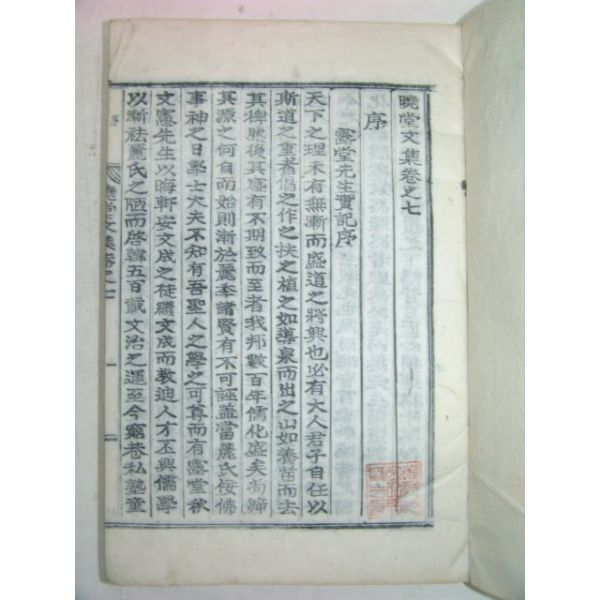 曉堂文集卷之七
序
露堂先生實記序
天下之理未有無漸而盛道之將興也必有大人君子自任以
斯道之重者倡之作之扶之植之如導泉而出之山如養苗而去
其稗然後其盛有不期致而至者我邦數百年儒化盛矣尚諦
其源之何自而始則漸於麗季諸賢有不可誣盖當麗氏佞佛
事神之日擧士大夫不知有吾聖人之學之可尊而有露堂秋
文憲先生以晦軒安文成之徒繼文成而敎迪人才丕興儒學
以漸祛麗氏之陋而啓韓五百載文治之運至今窮巷私塾童
序
曉堂文集卷之七